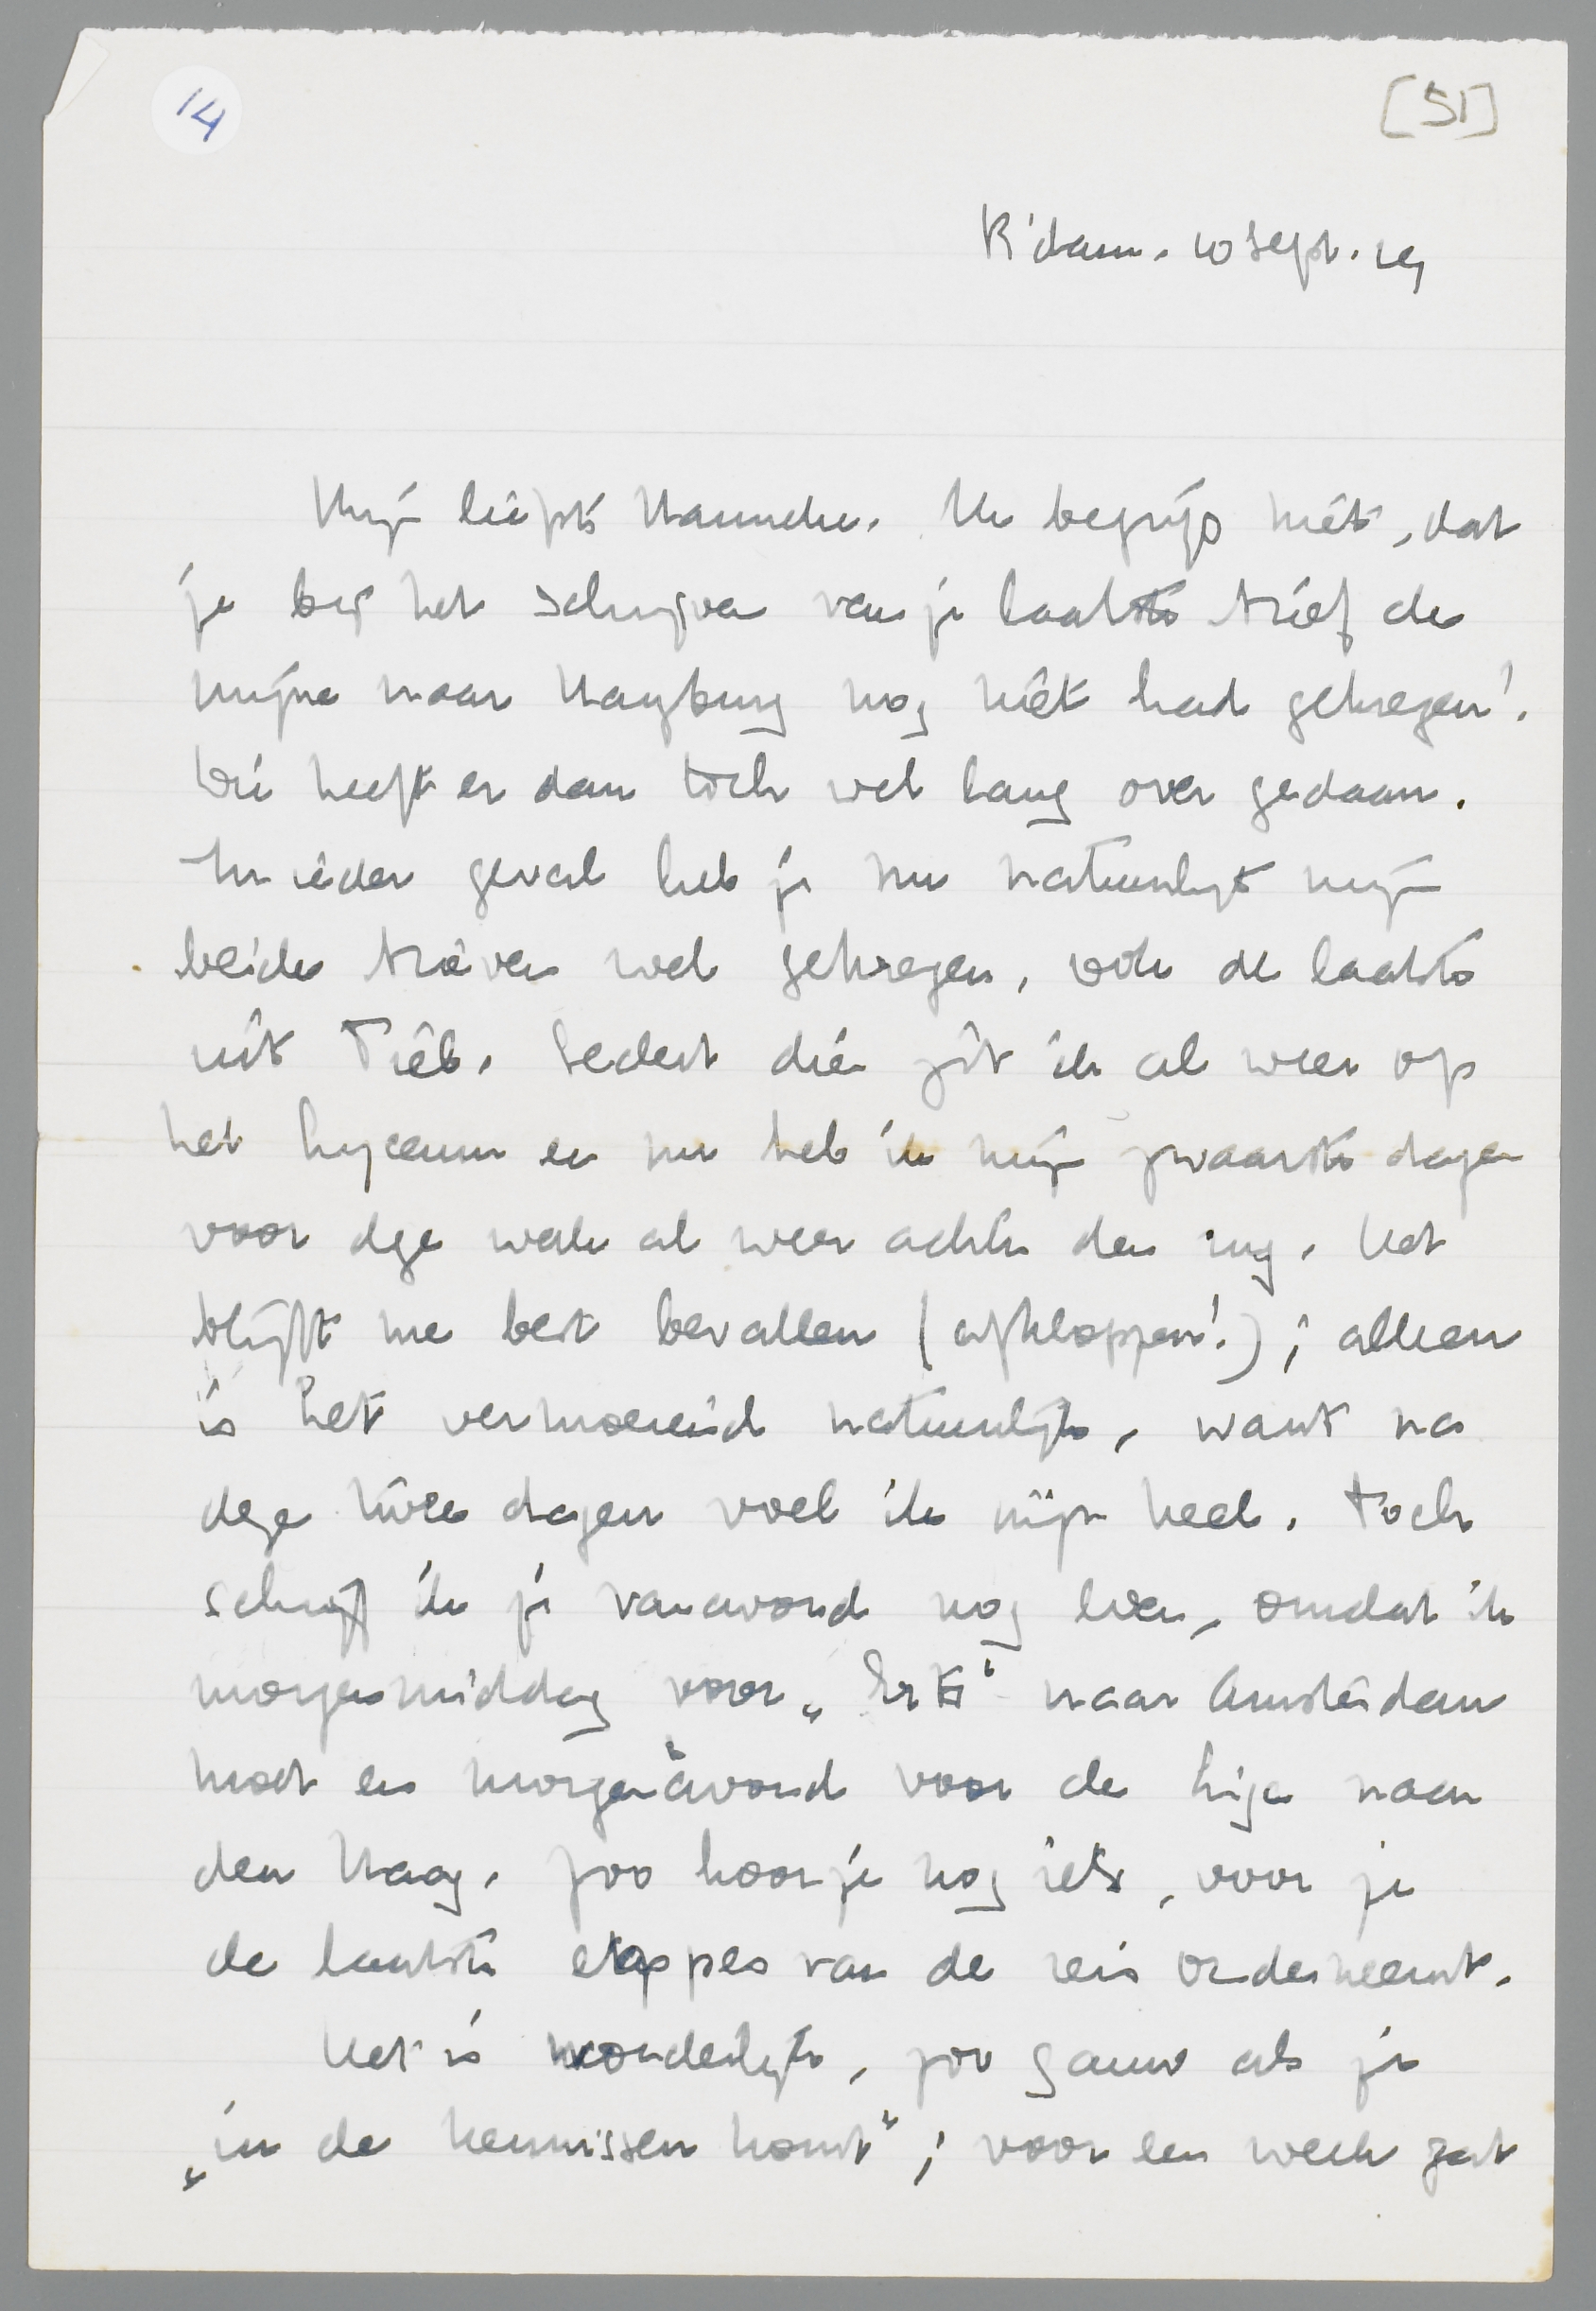 14
[51]
R'dam. 10 Sept. 29
Mijn liefste Hanneke. Ik begrijp niet, dat
je bij het schrijven van je laatste brief de
mijne naar Hamburg nog niet had gekregen!
Die heeft er dan toch wel lang over gedaan.
In ieder geval heb je nu natuurlijk mijn
beide brieven wel gekregen, ook de laatste
uit Tiel. Sedert dien zit ik al weer op
het Lyceum en nu heb ik mijn zwaarste dagen
voor deze week al weer achter den rug. Het
blijft me best bevallen (afkloppen!); alleen
is het vermoeiend natuurlijk, want na
deze twee dagen voel ik mijn keel. Toch
schrijf ik je vanavond nog even, omdat ik
morgenmiddag voor „ " naar Amsterdam
moet en morgenavond voor de Liga naar
den Haag. Zoo hoor je nog iets, voor je
de laatste etappes van de reis onderneemt.
Het is wonderlijk, zoo gauw als je
„in de kennissen komt"; voor een week zat